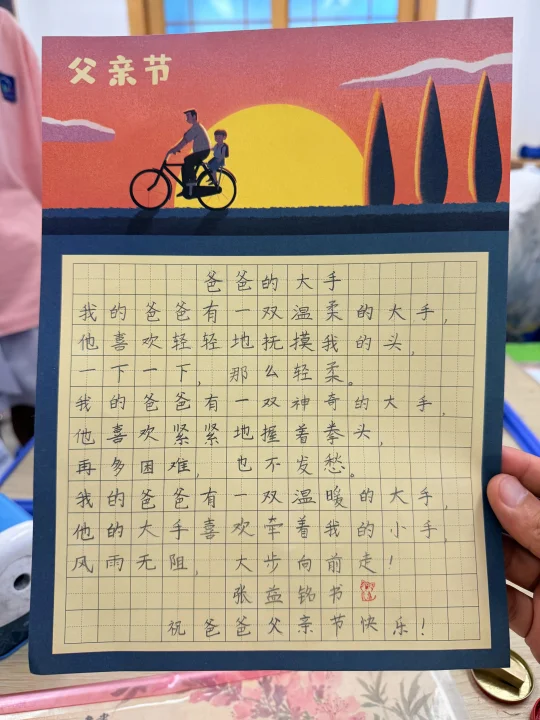 父亲节
爸爸的大手
我的爸爸有一双温柔的大手,
他喜欢轻轻地抚摸我的头,
一下一下,那么轻柔。
我的爸爸有一双神奇的大手,
他喜欢紧紧地握着拳头,
再多困难,也不发愁。
我的爸爸有一双温暖的大手,
他的大手喜欢牵着我的小手,
风雨无阻,大步向前走!
张益铭书
祝爸爸父亲节快乐!